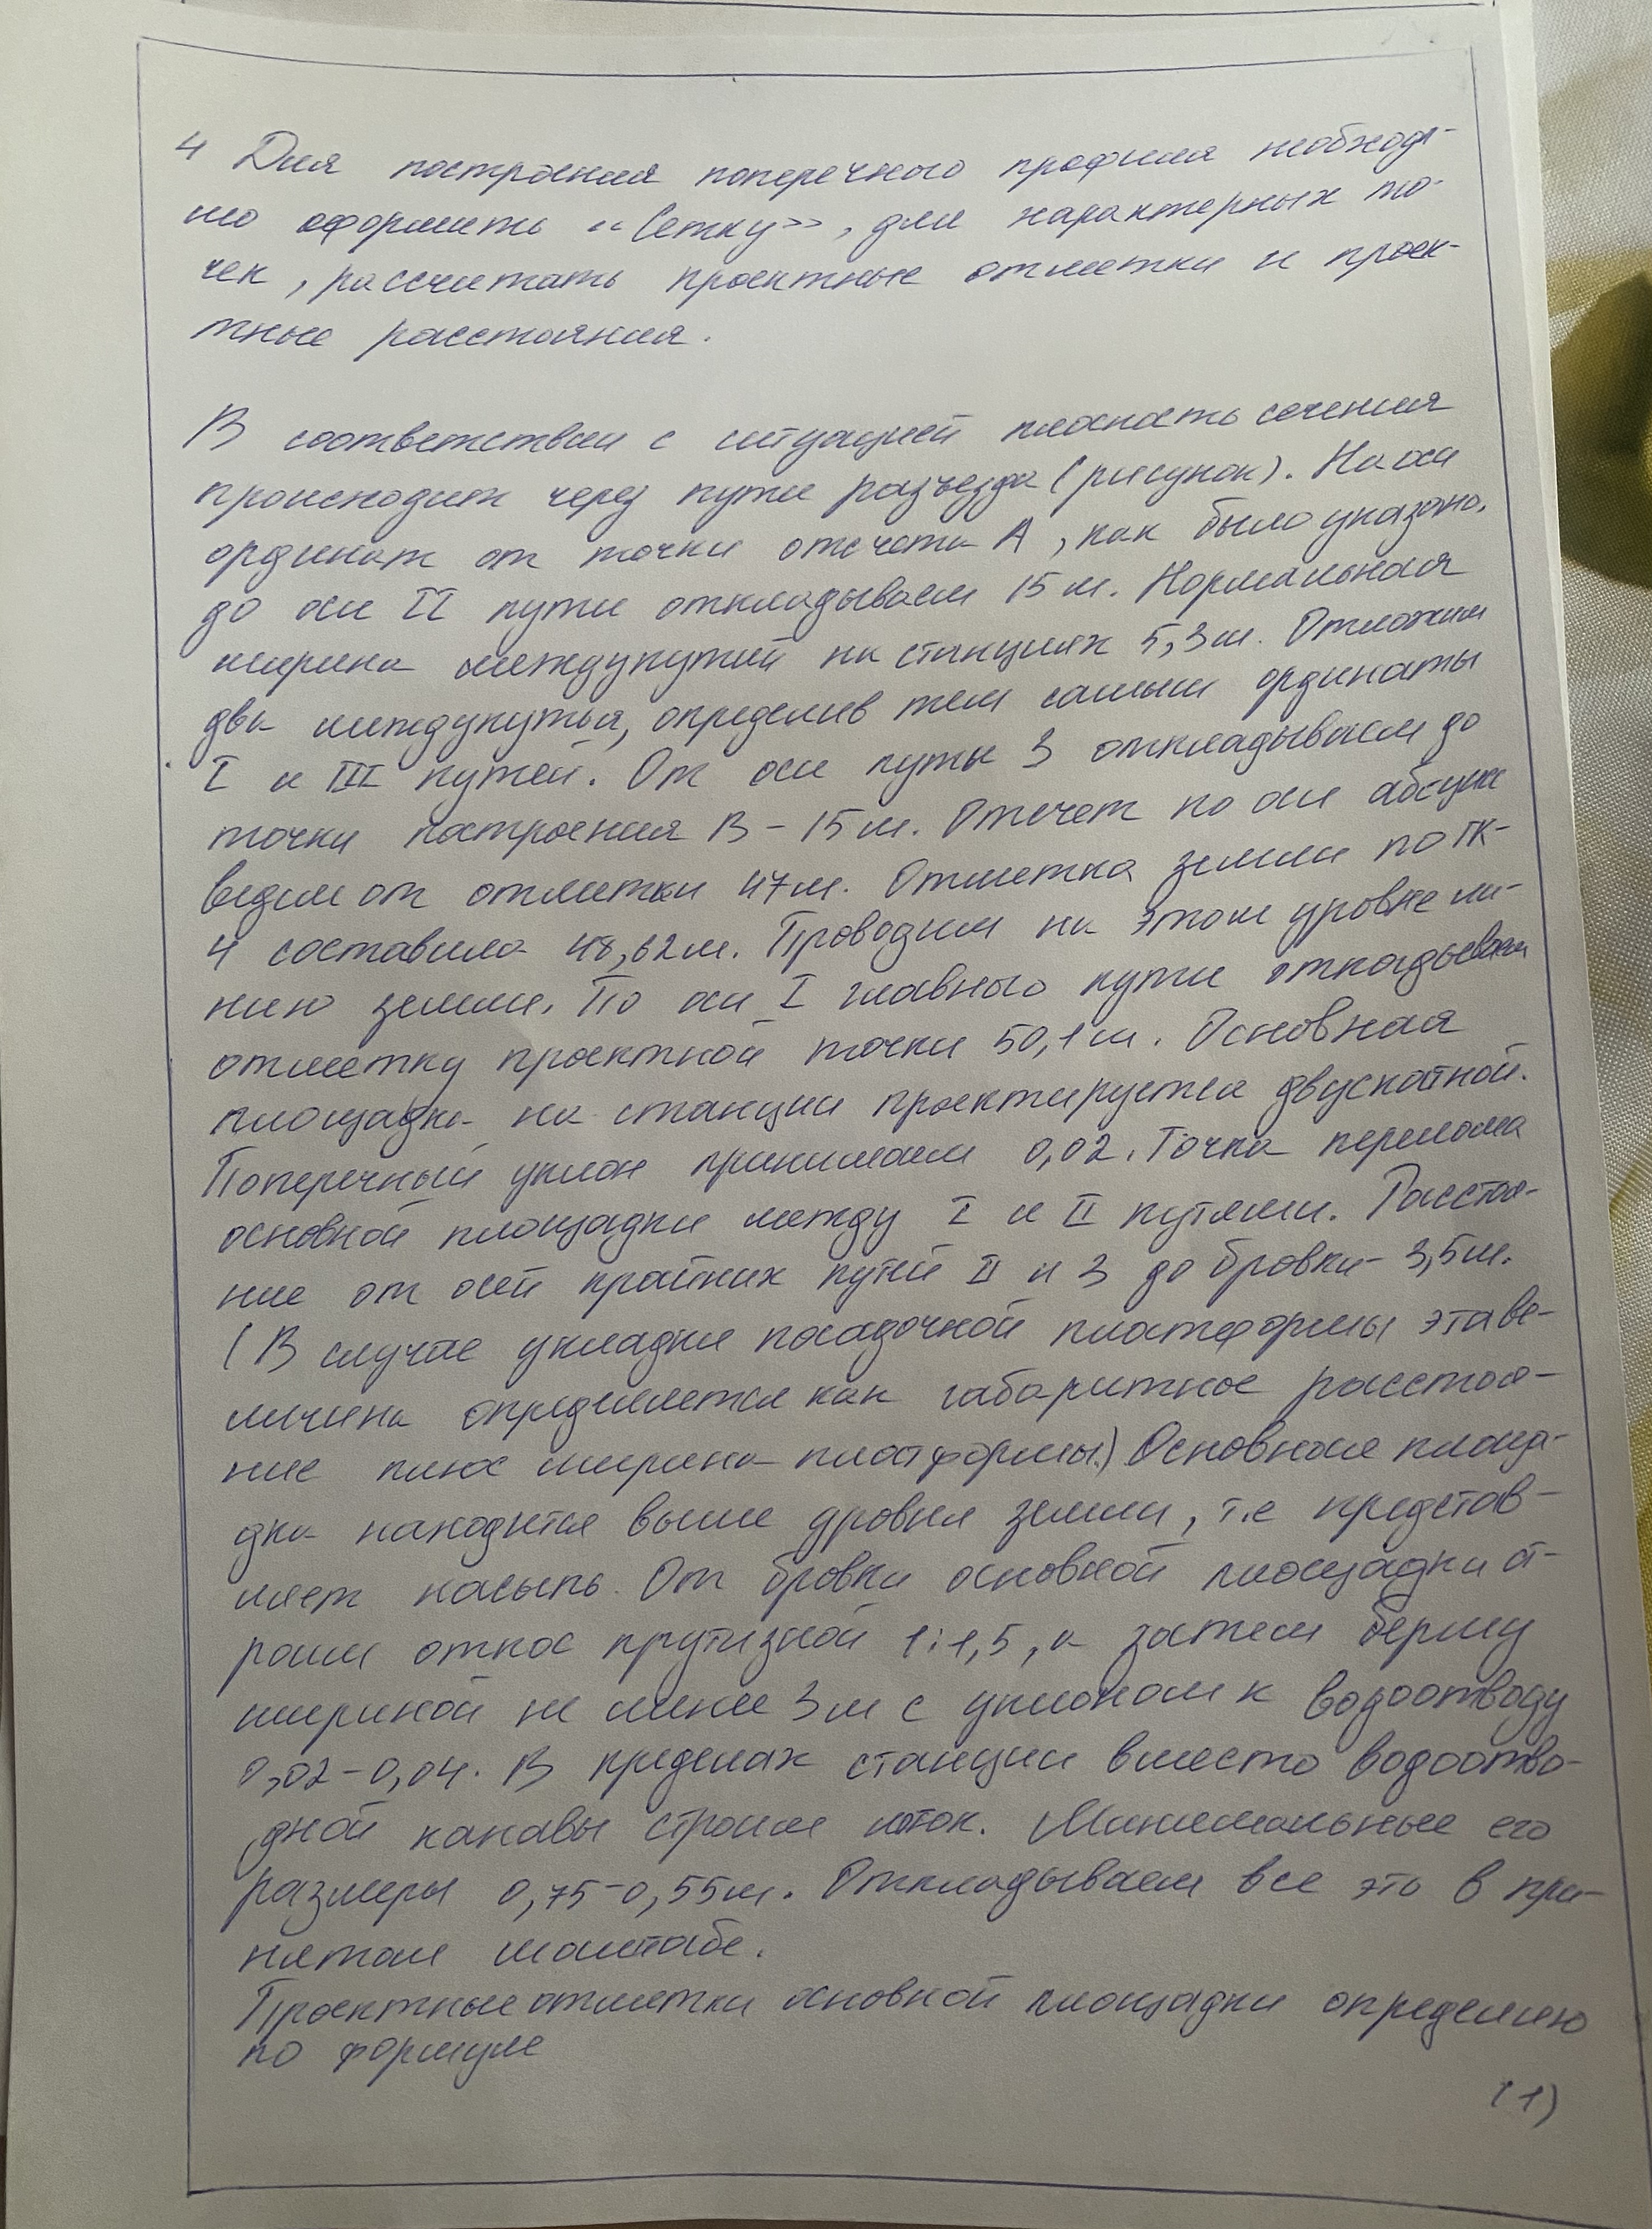 4 Для построения поперечного профиля необходи-
мо оформить «Сетку», для характерных то-
чек, рассчитать проектные отметки и проек-
тные расстояния.
В соответствии с ситуацией плоскость сечения
происходит через пути разъезда (рисунок). На оси
ординат от точки отсчета А, как было указано.
до оси II пути откладываем 15 м. Нормальная
ширина междупутий на станциях 5,3м. Отложим
два междупутья, определив тем самым ординаты
I и III путей. От оси пути 3 откладываем до
точки построения В - 15 м. Отсчет по оси абсцисс
ведем от отметки 47м. Отметка земли по ПК-
4 составила 48,62м. Проводим на этом уровне ли-
нию земли. По оси I главного пути откладываем
отметку проектной точки 50,1 м. Основная
площадка на станции проектируется двускатной.
Поперечный уклон принимаем 0,02. Точка перелома
основной площадки между I и II путями. Расстоя-
ние от осей крайних путей II и 3 до бровки - 3,5м.
(В случае укладки посадочной платформы эта ве-
личина определяется как габаритное расстоя-
ние плюс ширина платформы.) Основная площа-
дка находится выше уровня земли, т.е представ-
ляет насыпь. От бровки основной площадки ст-
роим откос крутизной 1:1,5, а затем берму
шириной не менее 3м с уклоном к водоотводу
0,02-0,04. В пределах станции вместо водоотво-
дной канавы строим лоток. Минимальные его
размеры 0,75-0,55м. Откладываем все это в при-
нятом масштабе.
Проектные отметки основной площадки определяю
по формуле
(1)